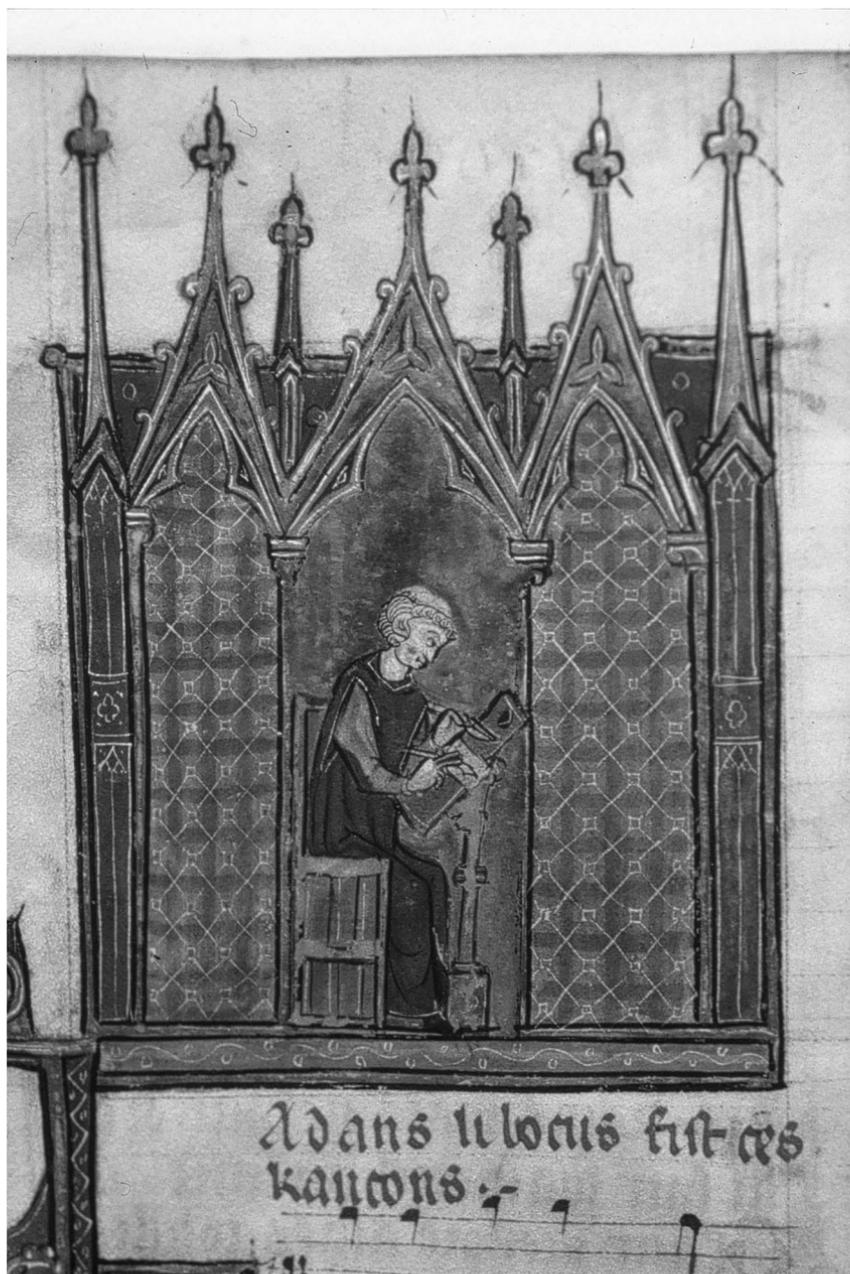 Adans li bocus fist ces
kancons